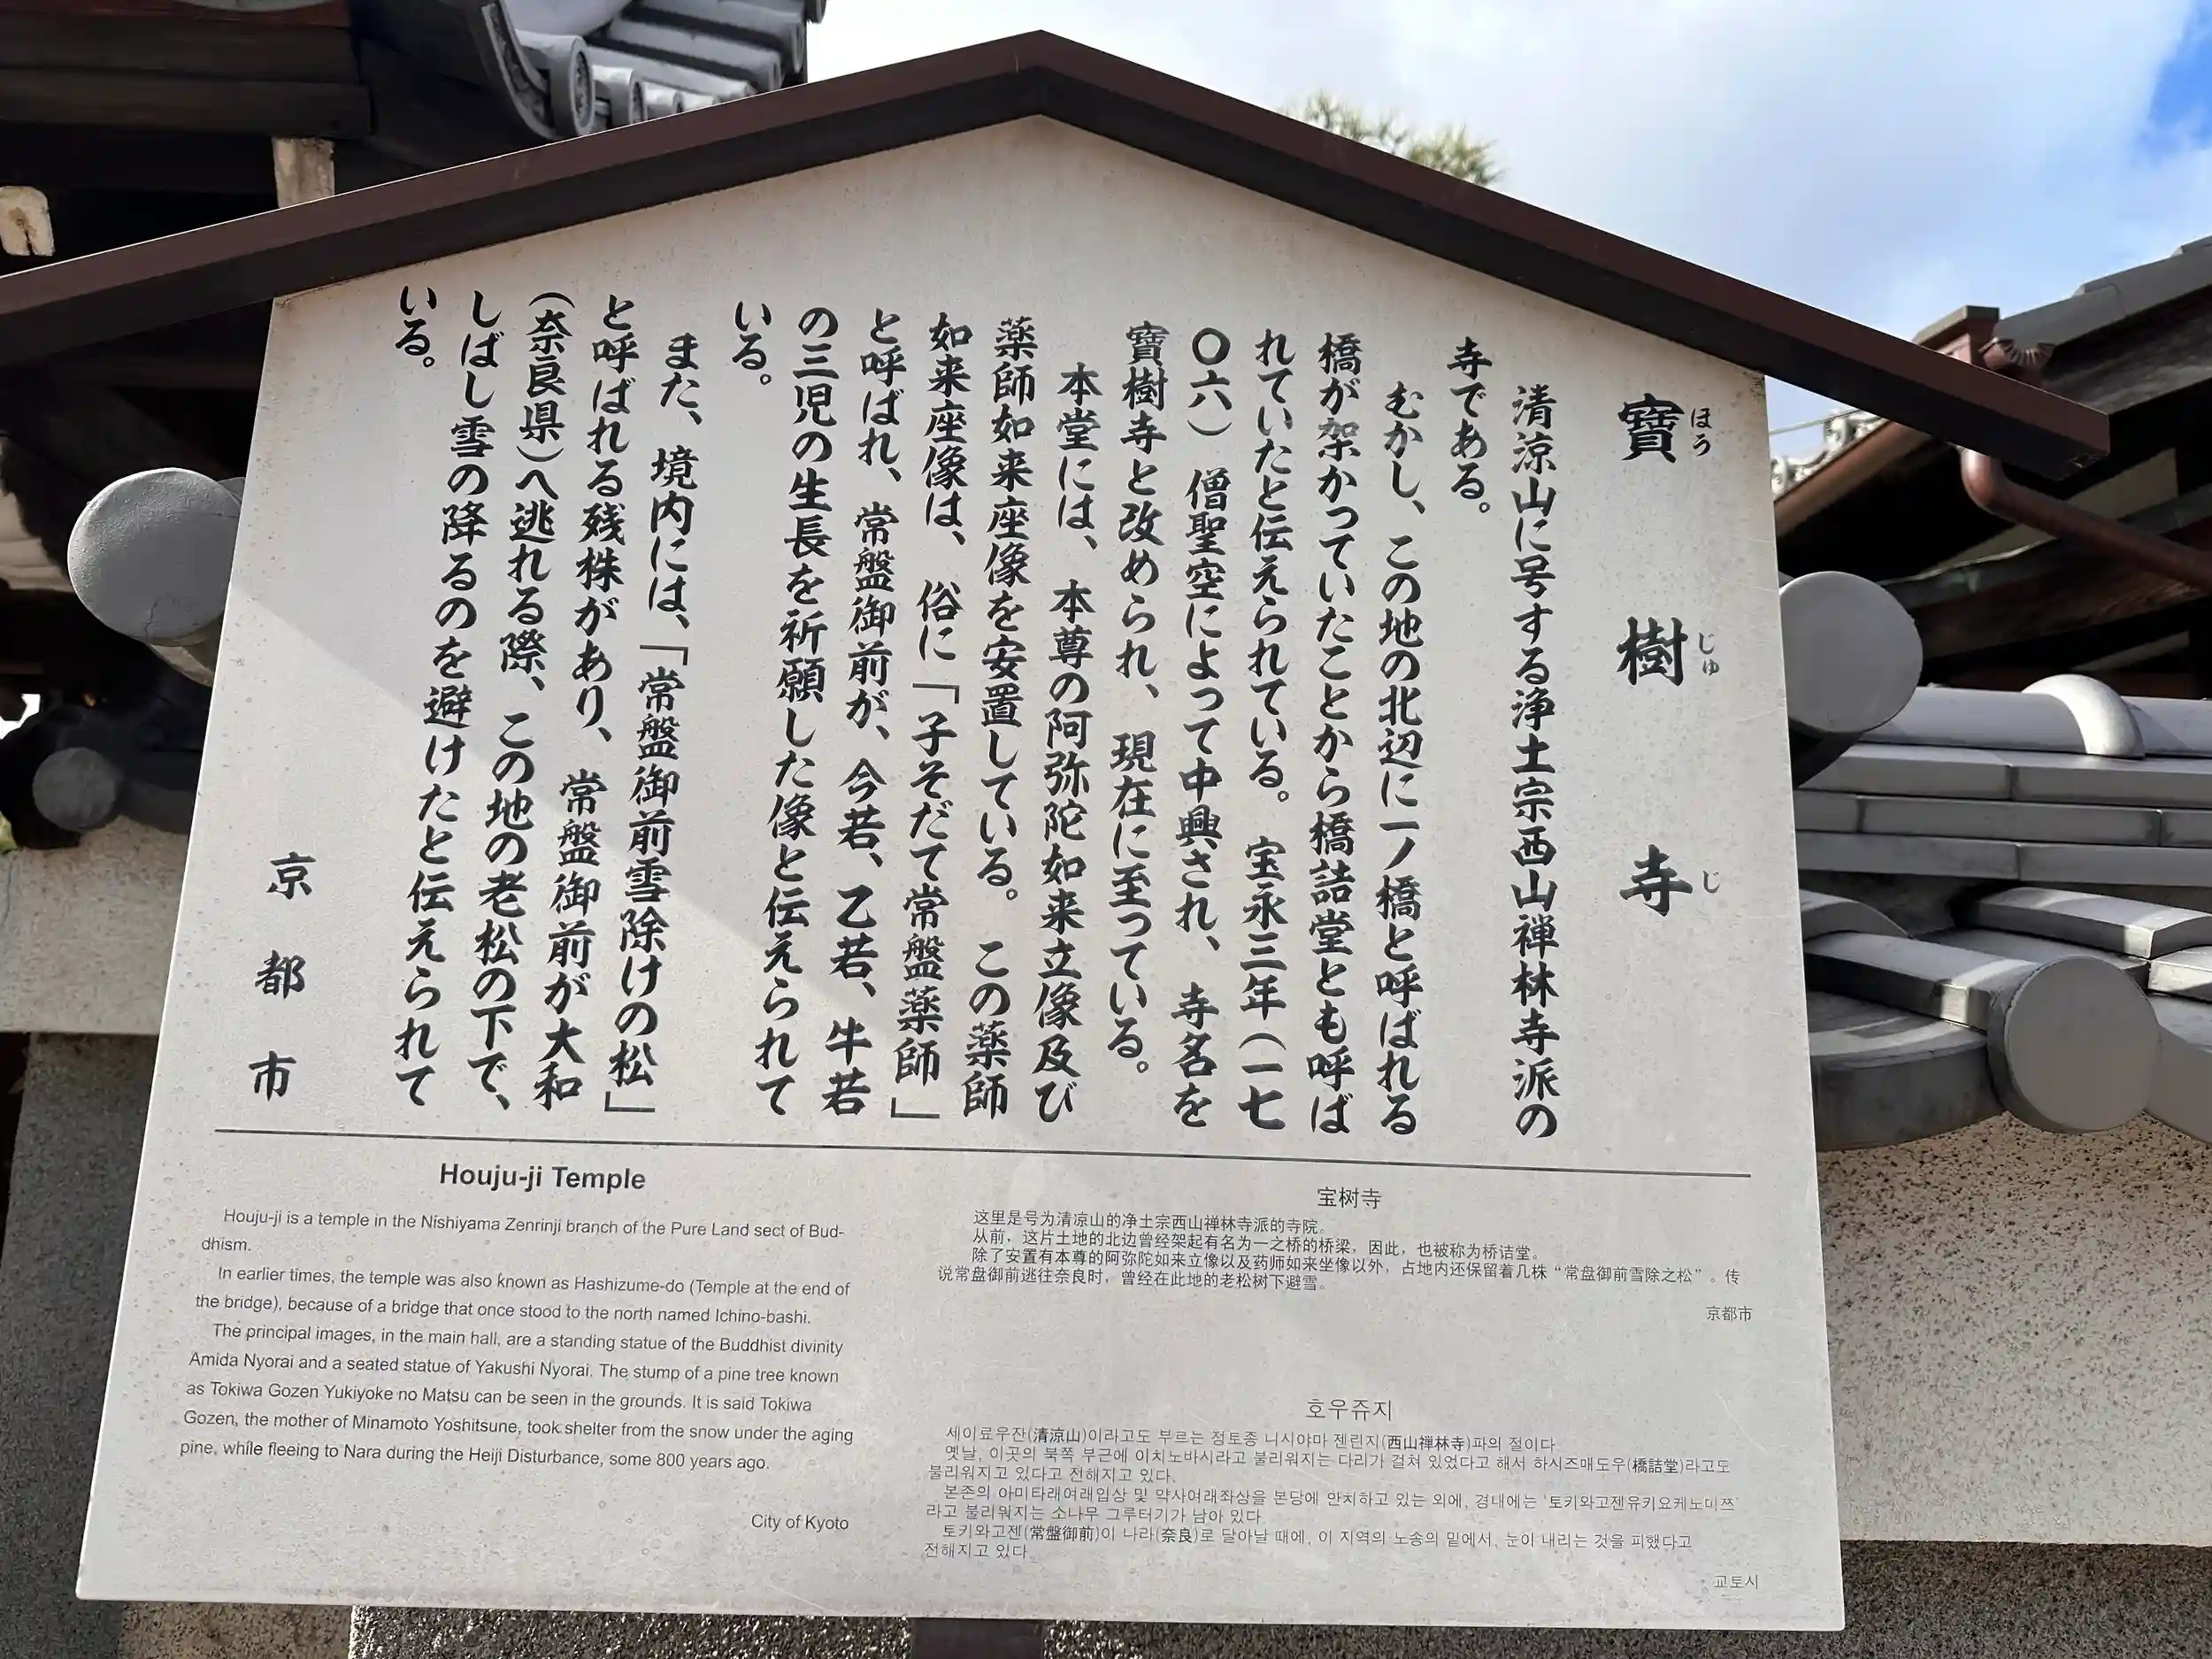 寶樹寺
ほうじゅじ
清涼山に号する浄土宗西山禅林寺派の
寺である。
むかし、この地の北辺に一ノ橋と呼ばれる
橋が架かっていたことから橋詰堂とも呼ば
れていたと伝えられている。宝永三年（一七
〇六）僧聖空によって中興され、寺名を
寶樹寺と改められ、現在に至っている。
本堂には、本尊の阿弥陀如来立像及び
薬師如来座像を安置している。この薬師
如来座像は、俗に「子そだて常盤薬師」
と呼ばれ、常盤御前が、今若、乙若、牛若
の三児の生長を祈願した像と伝えられて
いる。
また、境内には、「常盤御前雪除けの松」
と呼ばれる残株があり、常盤御前が大和
（奈良県）へ逃れる際、この地の老松の下で、
しばし雪の降るのを避けたと伝えられて
いる。
京都市
Houju-ji Temple
Houju-ji is a temple in the Nishiyama Zenrinji branch of the Pure Land sect of Bud-
dhism.
In earlier times, the temple was also known as Hashizume-do (Temple at the end of
the bridge), because of a bridge that once stood to the north named Ichino-bashi.
The principal images, in the main hall, are a standing statue of the Buddhist divinity
Amida Nyorai and a seated statue of Yakushi Nyorai. The stump of a pine tree known
as Tokiwa Gozen Yukiyoke no Matsu can be seen in the grounds. It is said Tokiwa
Gozen, the mother of Minamoto Yoshitsune, took shelter from the snow under the aging
pine, while fleeing to Nara during the Heiji Disturbance, some 800 years ago.
City of Kyoto
宝树寺
这里是号为清凉山的净土宗西山禅林寺派的寺院。
从前，这片土地的北边曾经架起有名为一之桥的桥梁，因此，也被称为桥诘堂。
除了安置有本尊的阿弥陀如来立像以及药师如来坐像以外，占地内还保留着几株“常盘御前雪除之松”。传
说常盘御前逃往奈良时，曾经在此地的老松树下避雪。
京都市
호우쥬지
세이료우잔(清涼山)이라고도 부르는 정토종 니시야마 젠린지(西山禅林寺)파의 절이다.
옛날, 이곳의 북쪽 부근에 이치노바시라고 불리워지는 다리가 걸쳐 있었다고 해서 하시즈매도우(橋詰堂)라고도
불리워지고 있다고 전해지고 있다.
본존의 아미타래여래입상 및 약사여래좌상을 본당에 안치하고 있는 외에, 경내에는 '토키와고젠유키요케노마쯔'
라고 불리워지는 소나무 그루터기가 남아 있다.
토키와고젠(常盤御前)이 나라(奈良)로 달아날 때에, 이 지역의 노송의 밑에서, 눈이 내리는 것을 피했다고
전해지고 있다.
교토시